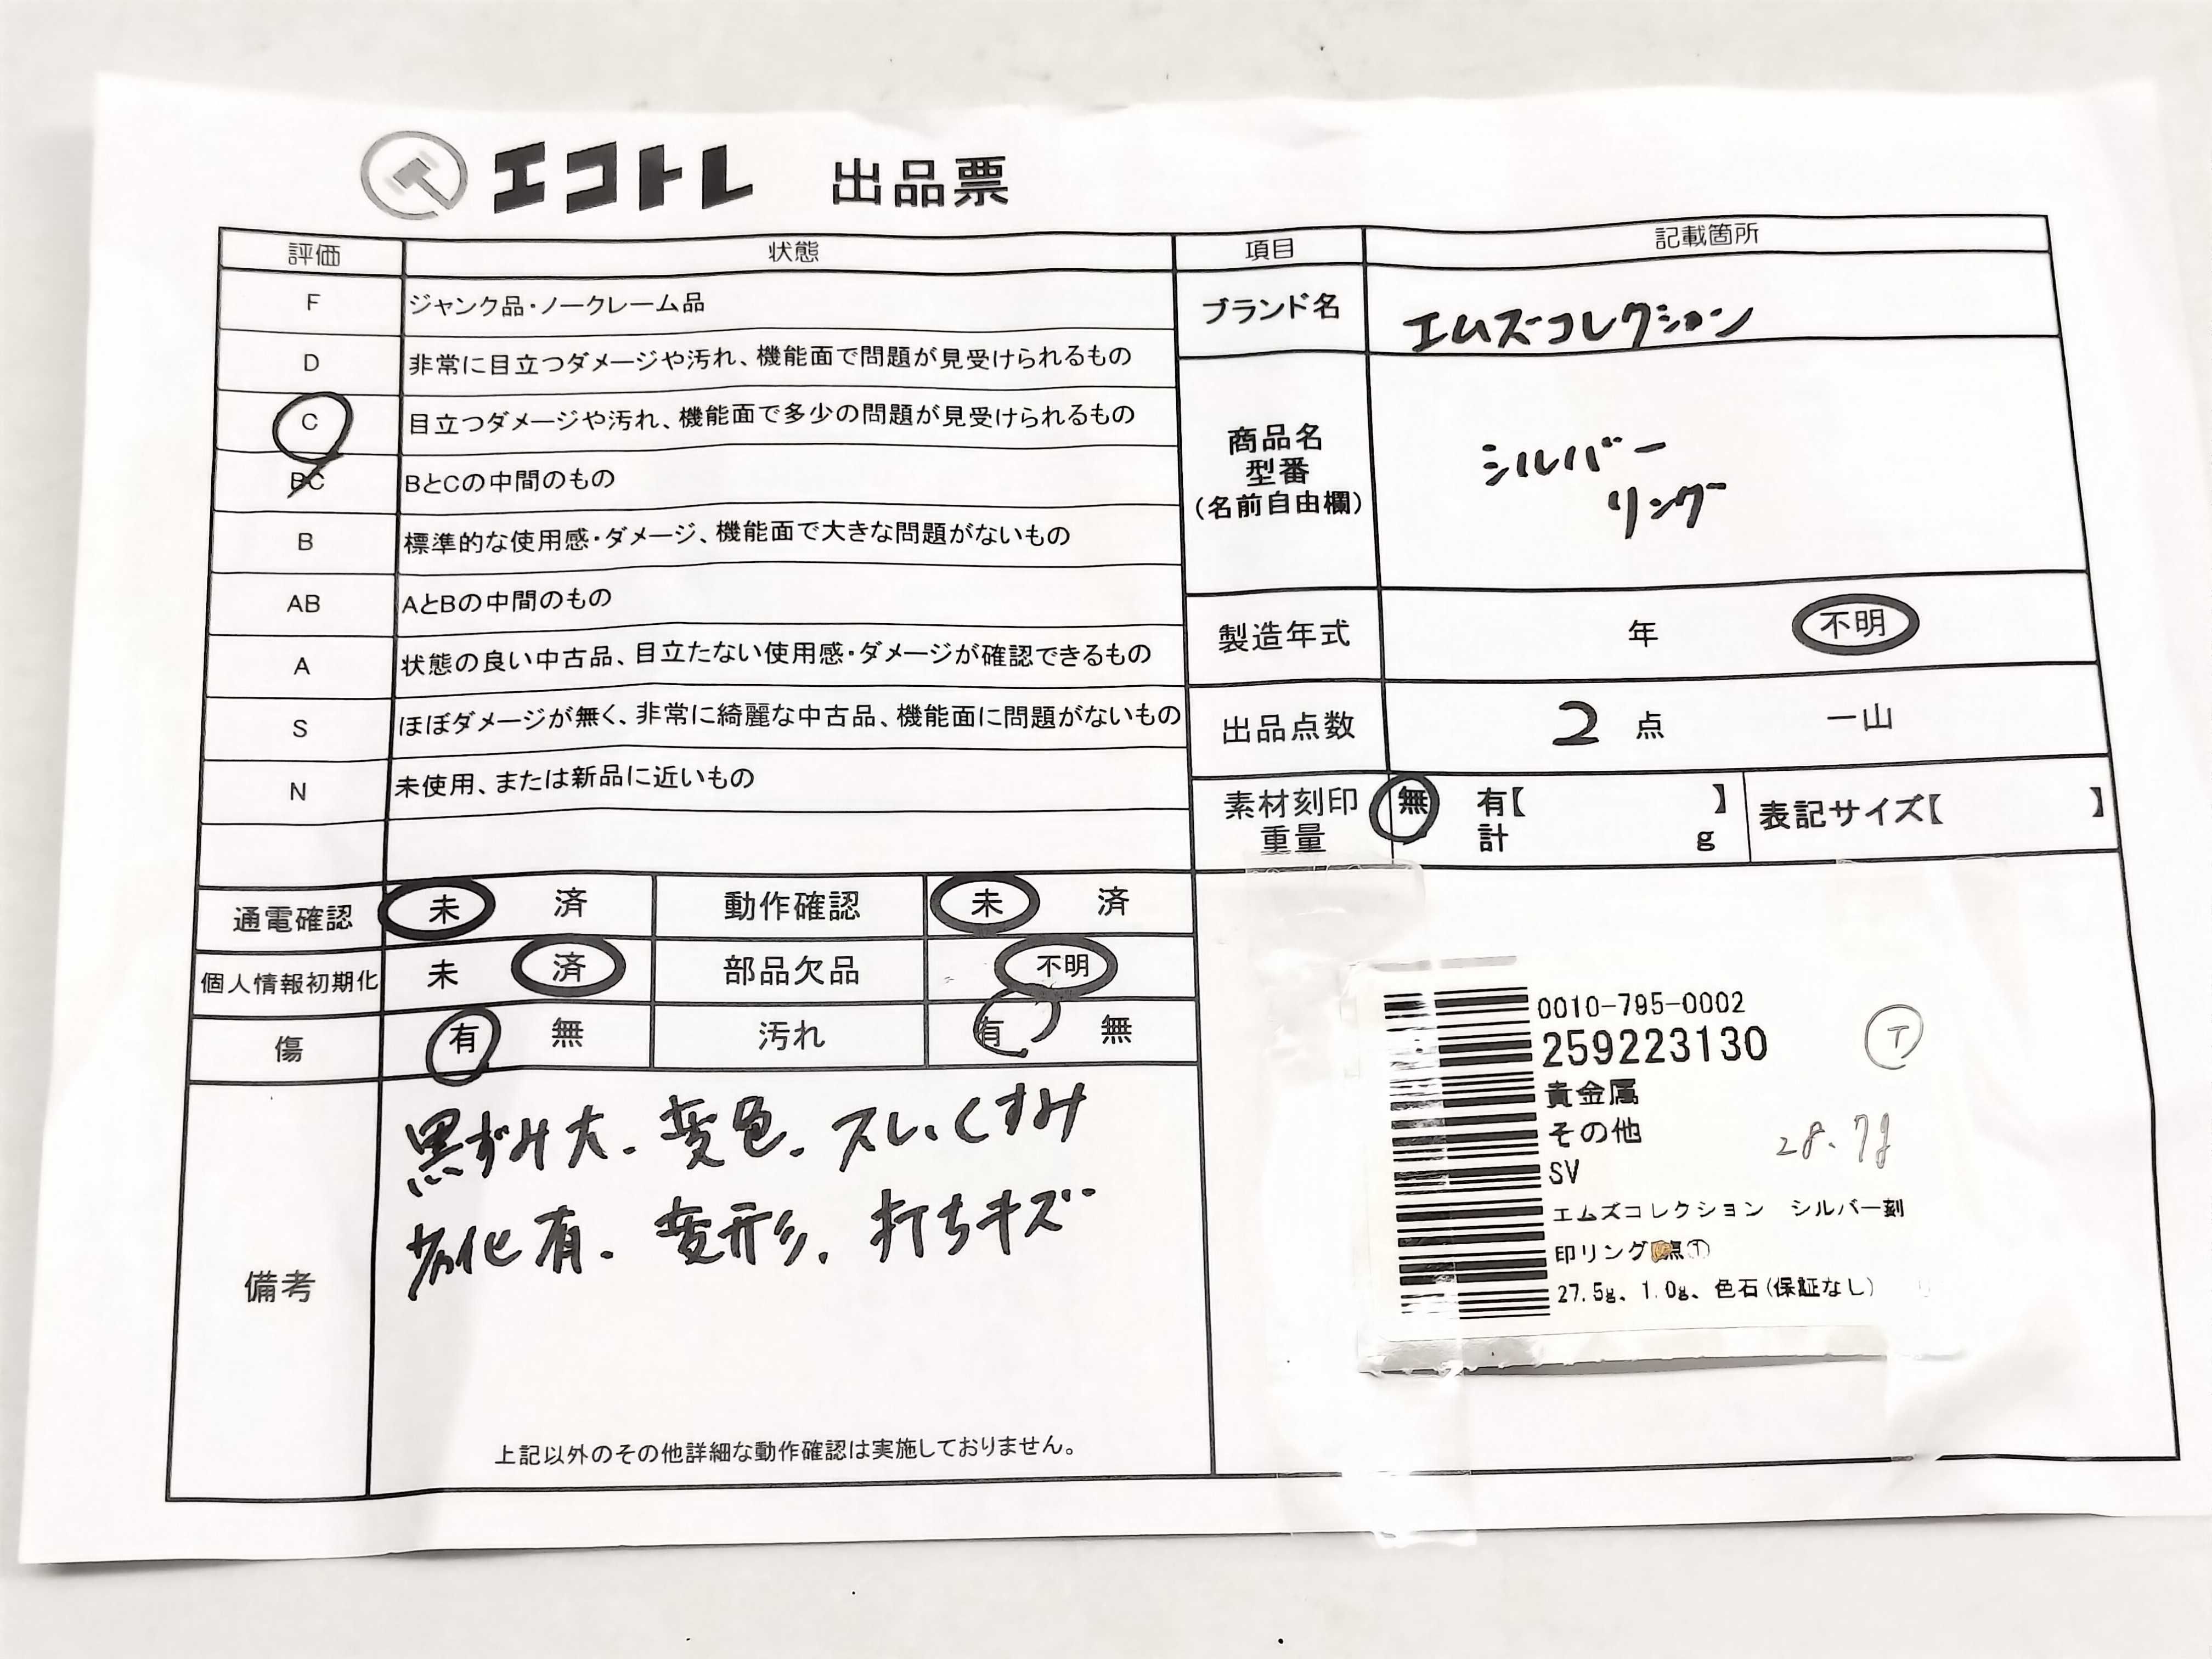 エコトレ 出品票
評価 状態 項目 記載箇所
F ジャンク品・ノークレーム品
D 非常に目立つダメージや汚れ、機能面で問題が見受けられるもの
C 目立つダメージや汚れ、機能面で多少の問題が見受けられるもの
BC BとCの中間のもの
B 標準的な使用感・ダメージ、機能面で大きな問題がないもの
AB AとBの中間のもの
A 状態の良い中古品、目立たない使用感・ダメージが確認できるもの
S ほぼダメージが無く、非常に綺麗な中古品、機能面に問題がないもの
N 未使用、または新品に近いもの
ブランド名 エムズコレクション
商品名
型番
(名前自由欄)
シルバー
リング
製造年式 年 不明
出品点数 2 点 一山
素材刻印 無 有【 】
重量 計 g
表記サイズ【 】
通電確認 未 済 動作確認 未 済
個人情報初期化 未 済 部品欠品 不明
傷 有 無 汚れ 有 無
備考
黒ずみ大、変色、スレ、くすみ
劣化有、変形、打ちキズ
上記以外のその他詳細な動作確認は実施しておりません。
0010-795-0002
259223130 T
貴金属
その他 28.7g
SV
エムズコレクション シルバー刻
印リング 点①
27.5g、1.0g、色石(保証なし)